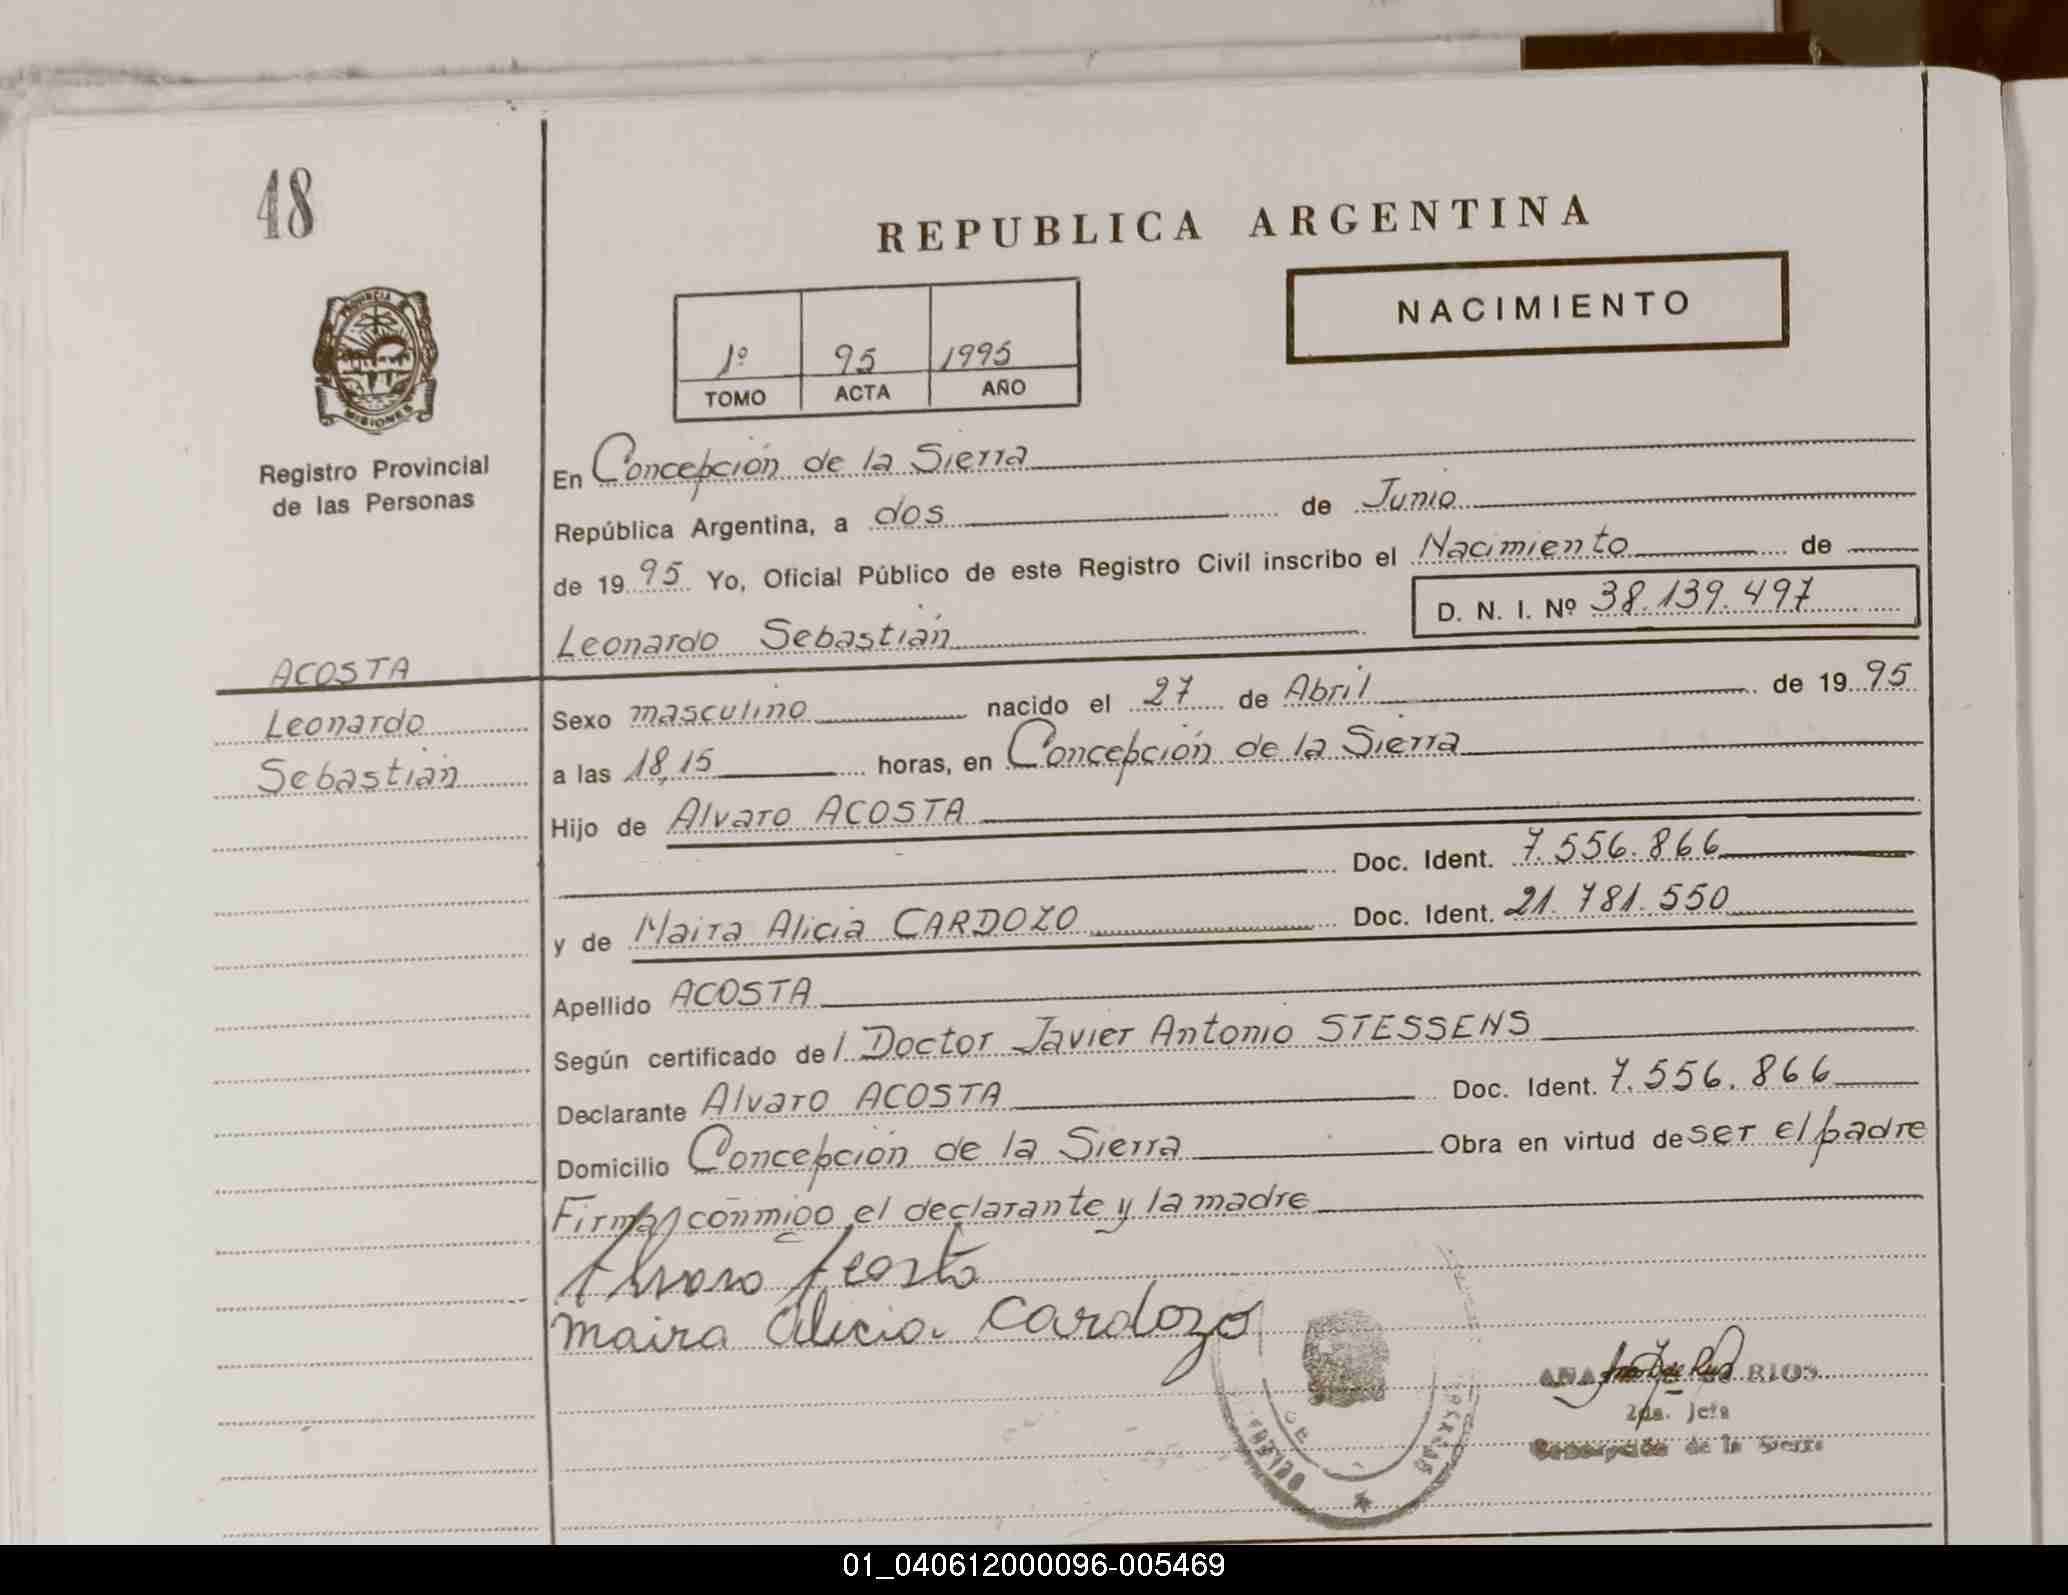 48
REPUBLICA ARGENTINA
NACIMIENTO
1º 95 1995
TOMO ACTA AÑO
PROVINCIA DE
MISIONES
Registro Provincial
de las Personas
En Concepción de la Sierra
República Argentina, a dos de Junio
de 1995 Yo, Oficial Público de este Registro Civil inscribo el Nacimiento de
D. N. I. Nº 38.139.497
Leonardo Sebastián
ACOSTA
Leonardo
Sebastián
Sexo masculino nacido el 27 de Abril de 1995
a las 18,15 horas, en Concepción de la Sierra
Hijo de Alvaro ACOSTA
Doc. Ident. 7.556.866
y de Maira Alicia CARDOZO Doc. Ident. 21.781.550
Apellido ACOSTA
Según certificado del Doctor Javier Antonio STESSENS
Declarante Alvaro ACOSTA Doc. Ident. 7.556.866
Domicilio Concepción de la Sierra Obra en virtud de ser el padre
Firman conmigo el declarante y la madre
Alvaro Acosta
Maira Alicia Cardozo
ANA RIOS
2da. Jefa
Concepción de la Sierra
01_040612000096-005469